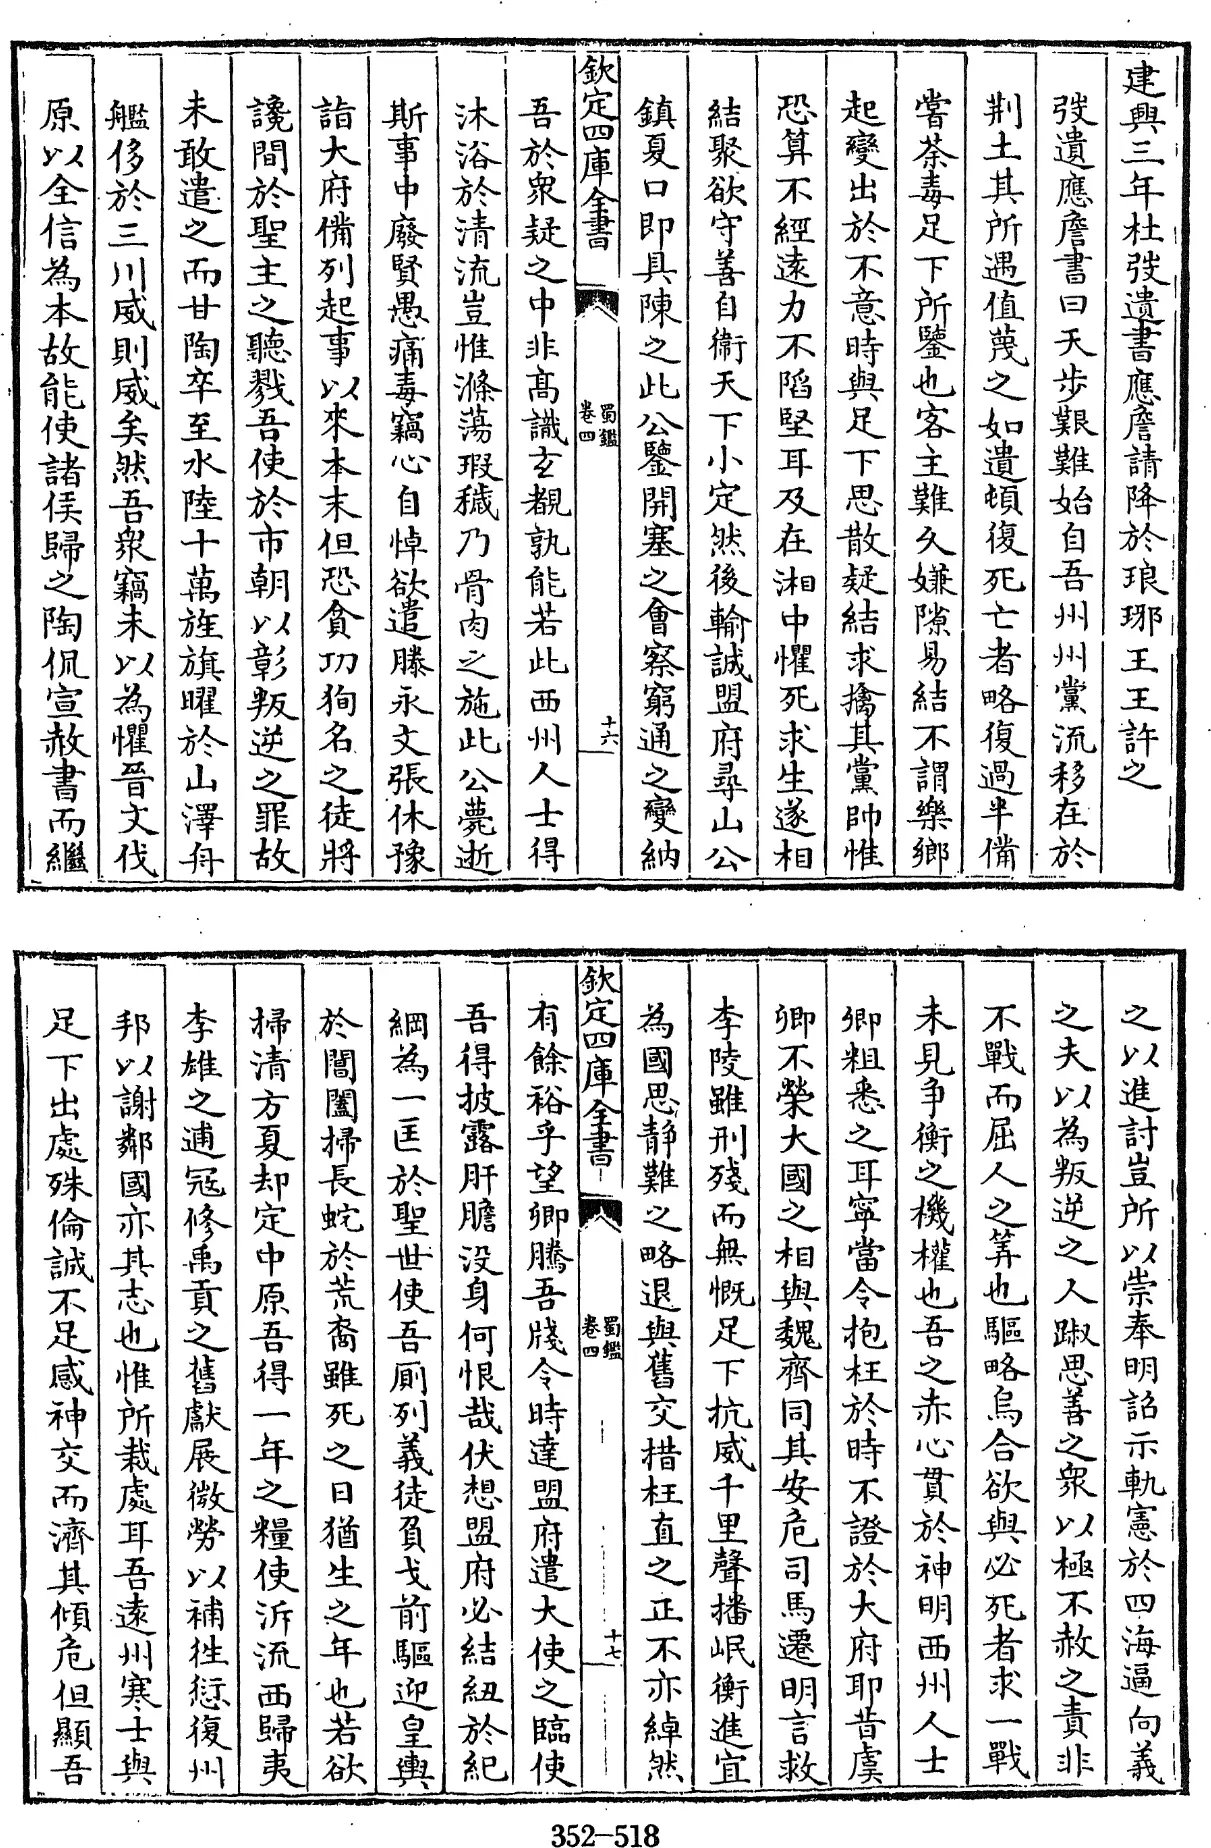 建興三年杜弢遺書應詹請降於琅琊王王許之
弢遺應詹書曰天步艱難始自吾州州黨流移在於
荆土其所遇值蔑之如遺頓復死亡者略復過半備
嘗荼毒足下所鑒也客主難久嫌隙易結不謂樂鄉
起變出於不意時與足下思散疑結求擒其黨帥惟
恐算不經遠力不陷堅耳及在湘中懼死求生遂相
結聚欲守善自衛天下小定然後輸誠盟府尋山公
鎮夏口即具陳之此公鑒開塞之會察窮通之變納
欽定四庫全書
蜀鑑
卷四
十六
吾於衆疑之中非髙識玄覩孰能若此西州人士得
沐浴於清流豈惟滌蕩瑕穢乃骨肉之施此公薨逝
斯事中廢賢愚痛毒竊心自悼欲遣滕永文張休豫
詣大府備列起事以來本末但恐貪功狥名之徒將
讒間於聖主之聽戮吾使於市朝以彰叛逆之罪故
未敢遣之而甘陶卒至水陸十萬旌旗曜於山澤舟
艦侈於三川威則威矣然吾衆竊未以為懼晉文伐
原以全信為本故能使諸侯歸之陶侃宣赦書而繼
之以進討豈所以崇奉明詔示軌憲於四海逼向義
之夫以為叛逆之人踧思善之衆以極不赦之責非
不戰而屈人之筭也驅略烏合欲與必死者求一戰
未見争衡之機權也吾之赤心貫於神明西州人士
卿粗悉之耳寧當令抱枉於時不證於大府耶昔虞
卿不榮大國之相與魏齊同其安危司馬遷明言救
李陵雖刑殘而無慨足下抗威千里聲播岷衡進宜
為國思静難之略退與舊交措枉直之正不亦綽然
欽定四庫全書
蜀鑑
卷四
十七
有餘裕乎望卿騰吾牋令時達盟府遣大使之臨使
吾得披露肝膽没身何恨哉伏想盟府必結紐於紀
綱為一匡於聖世使吾厠列義徒負戈前驅迎皇輿
於閶闔掃長蛇於荒裔雖死之日猶生之年也若欲
掃清方夏却定中原吾得一年之糧使泝流西歸夷
李雄之逋冦修禹貢之舊獻展微勞以補徃愆復州
邦以謝鄰國亦其志也惟所裁處耳吾逺州寒士與
足下出處殊倫誠不足感神交而濟其傾危但顯吾
352-518